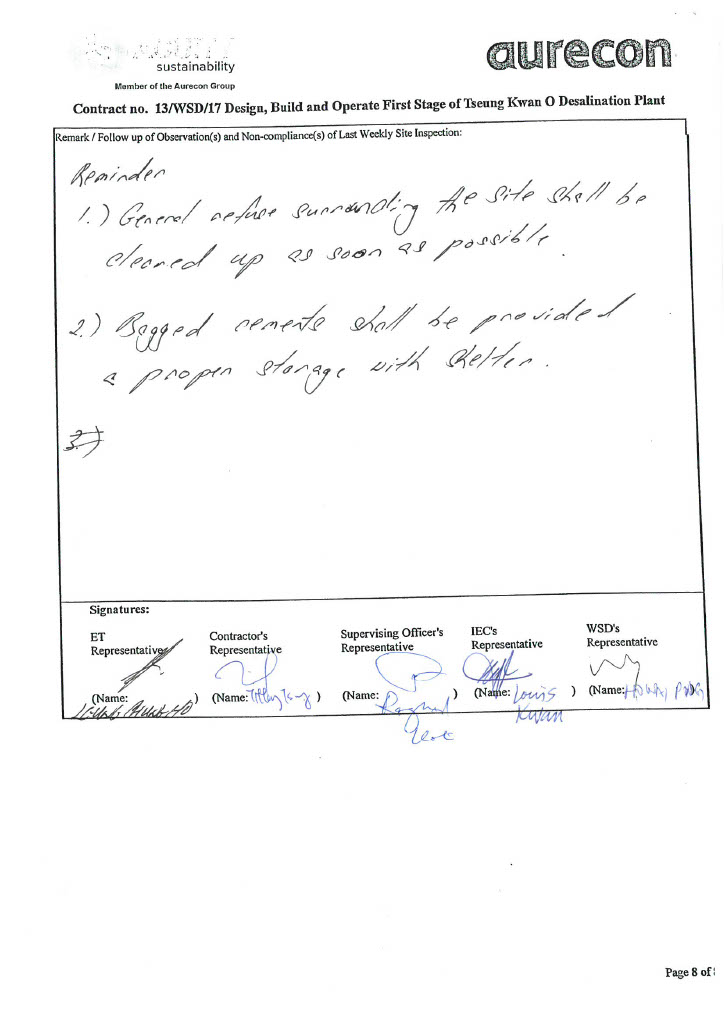 sustainability
aurecon
Member of the Aurecon Group
Contract no. 13/WSD/17 Design, Build and Operate First Stage of Tseung Kwan O Desalination Plant
Remark / Follow up of Observation(s) and Non-compliance(s) of Last Weekly Site Inspection:
Reminder
1.) General refuse surrounding the site shall be
cleared up as soon as possible.
2.) Bagged cements shall be provided
a proper storage with shelter.
3.)
Signatures:
ET Representative
Contractor's Representative
Supervising Officer's Representative
IEC's Representative
WSD's Representative
(Name: )
(Name: )
(Name: )
(Name: Louis Kwan )
(Name:
Page 8 of